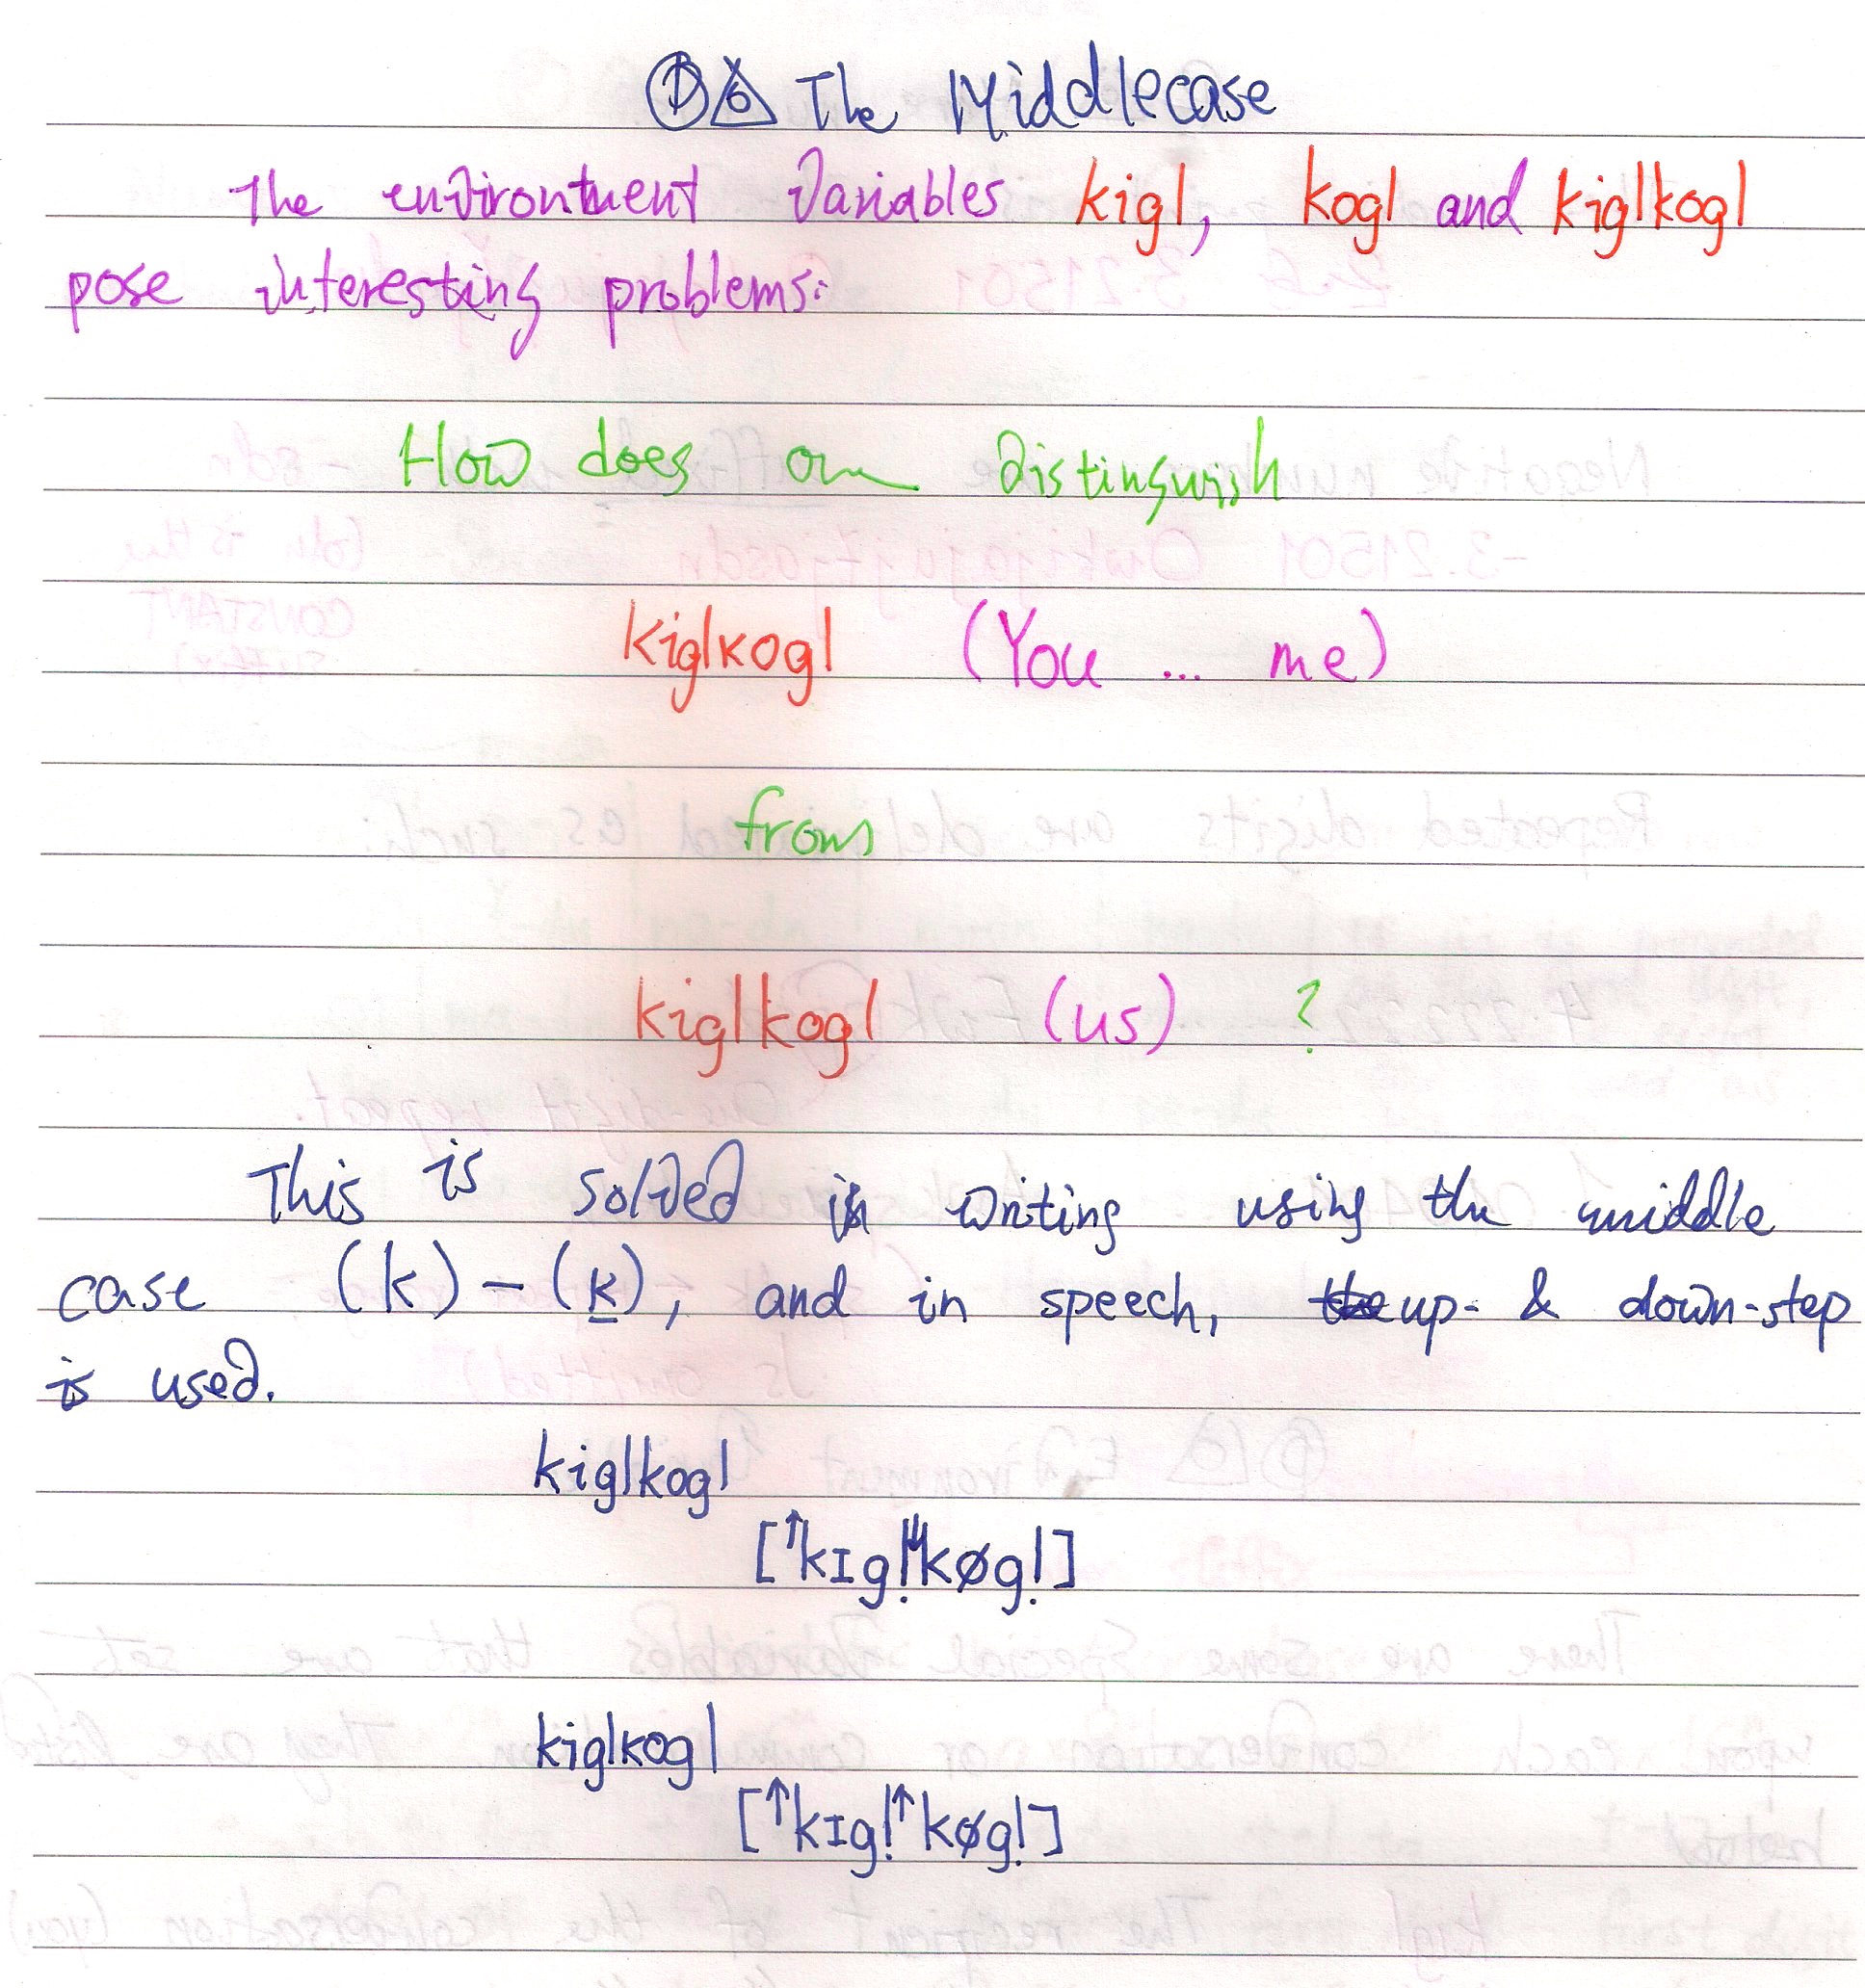 The Middlecase
The environtment variables kigl, kogl and kiglkogl
pose interesting problems:
How does one distinguish
kiglĸogl (You ... me)
from
kiglkogl (us) ?
This is solved in writing using the middle
case (k) – (ĸ), and in speech, up- & down-step
is used.
kiglkogl
[ꜛkɪgl̩ꜜkøgl̩]
kiglĸogl
[↑kɪgl̩↑køgl̩]